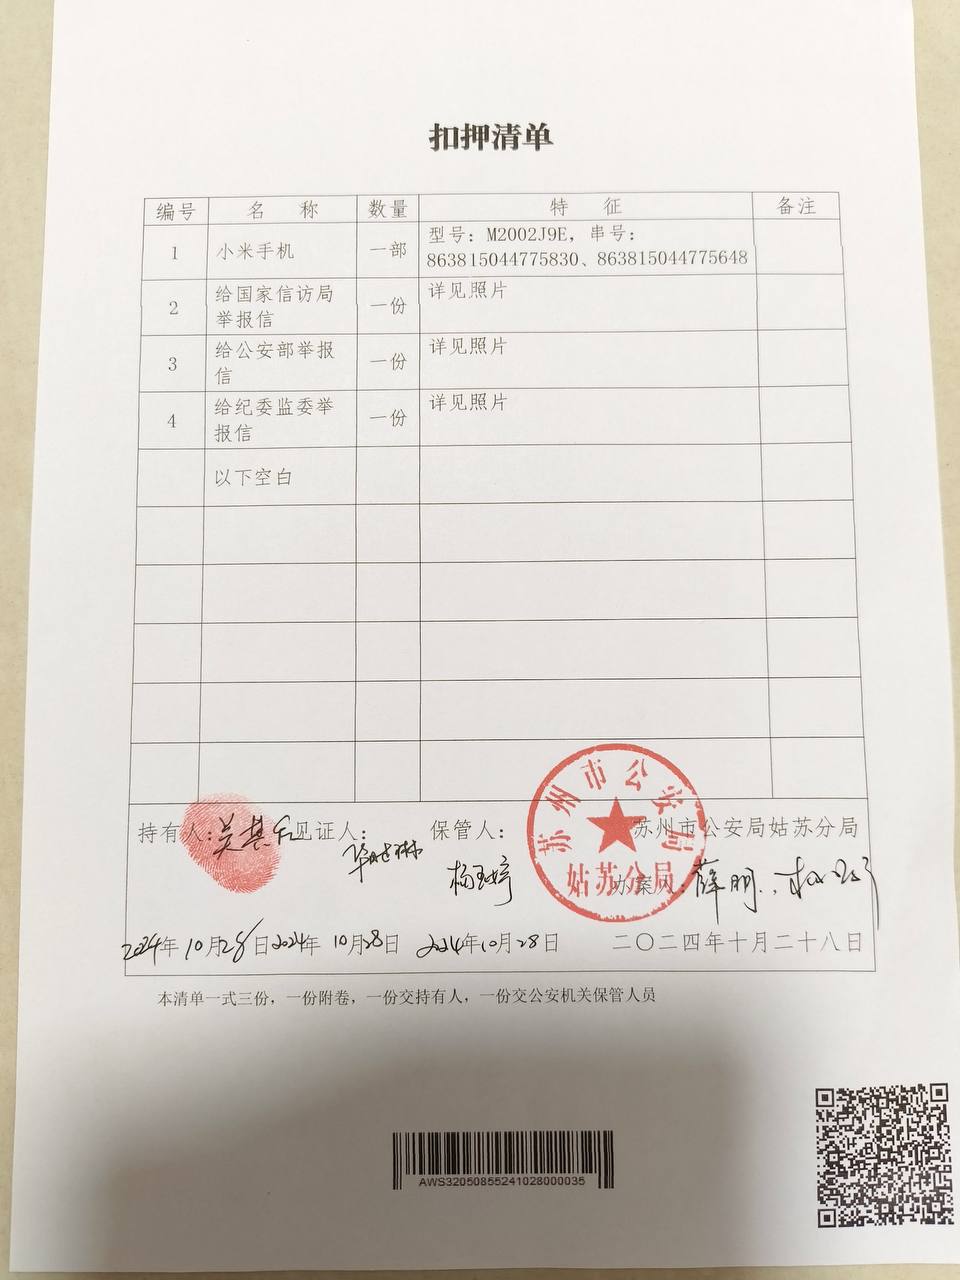 扣押清单
编号 名 称 数量 特 征 备注
1 小米手机 一部 型号：M2002J9E，串号：
863815044775830、863815044775648
2 给国家信访局 一份 详见照片
举报信
3 给公安部举报 一份 详见照片
信
4 给纪委监委举 一份 详见照片
报信
以下空白
持有人： 见证人： 保管人： 苏州市公安局姑苏分局
杨玉婷 办案人：薛明
苏州市公安局
姑苏分局
2024年10月28日 2024年10月28日 2024年10月28日 二〇二四年十月二十八日
本清单一式三份，一份附卷，一份交持有人，一份交公安机关保管人员
AWS32050855241028000035